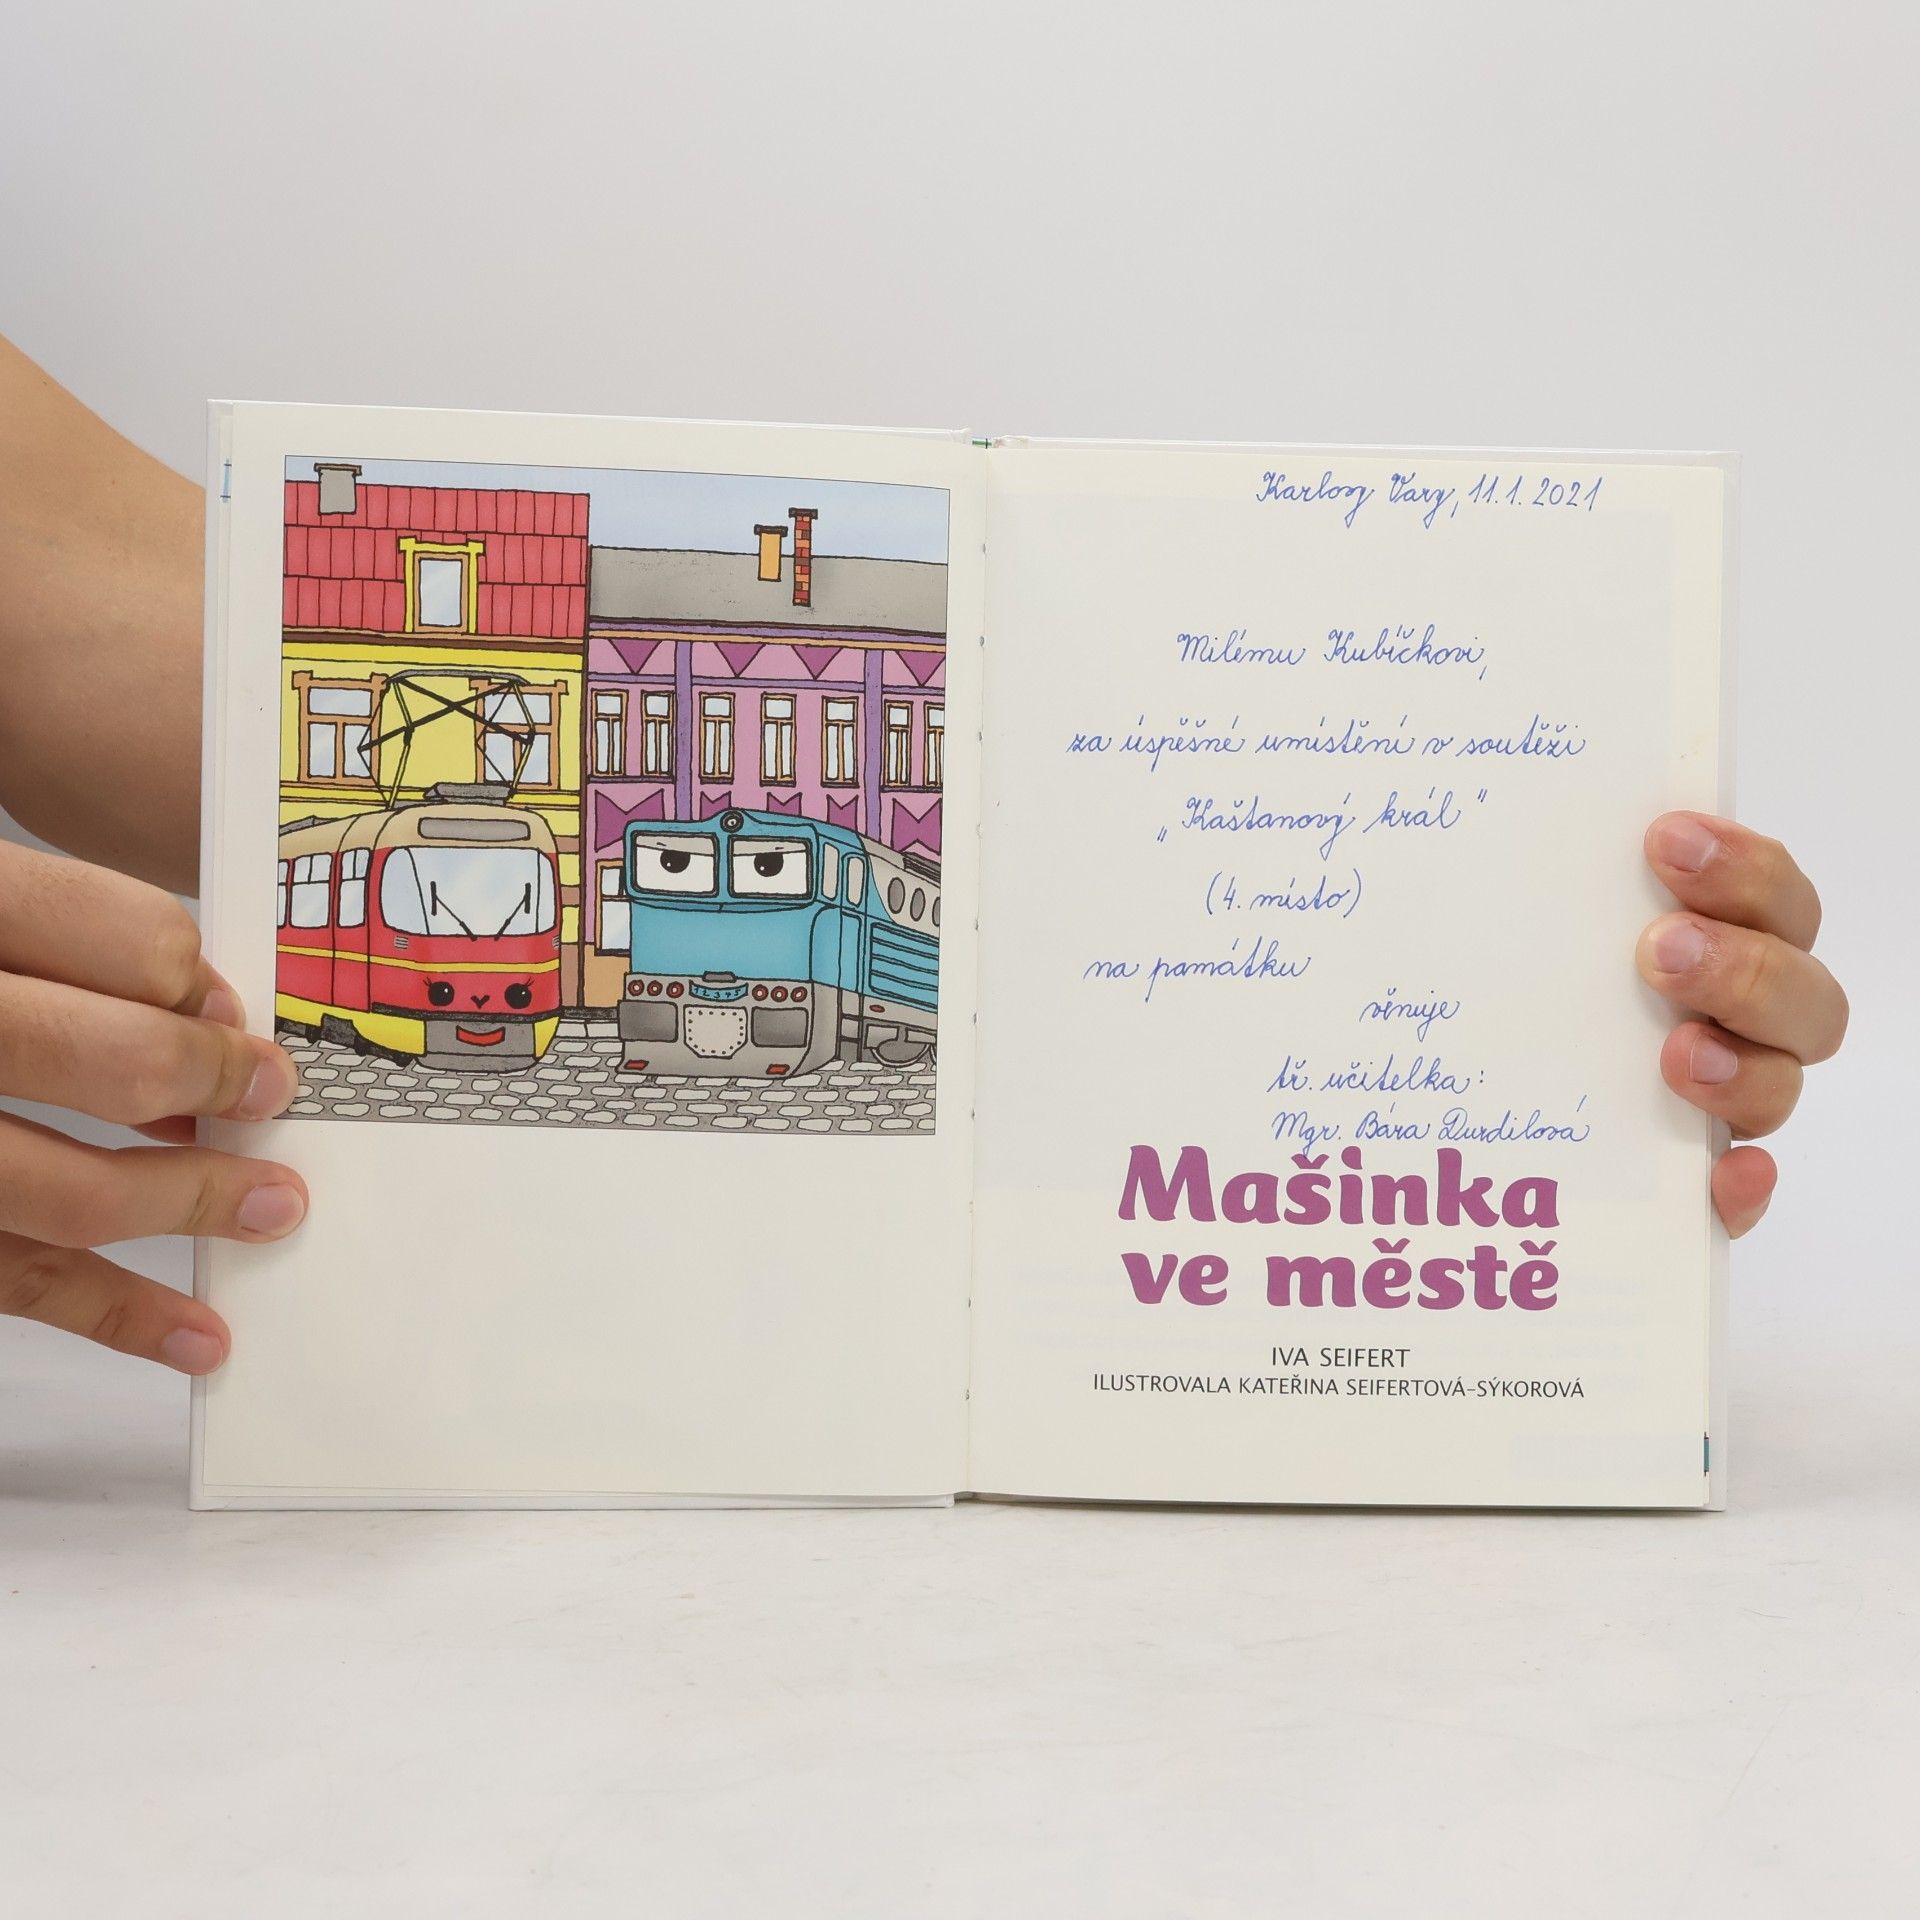 12345
Karlovy Vary, 11.1.2021
Milému Kubíčkovi,
za úspěšné umístění v soutěži
„Kaštanový král"
(4. místo)
na památku
věnuje
tř. učitelka:
Mgr. Bára Durdilová
Mašinka
ve městě
IVA SEIFERT
ILUSTROVALA KATEŘINA SEIFERTOVÁ-SÝKOROVÁ